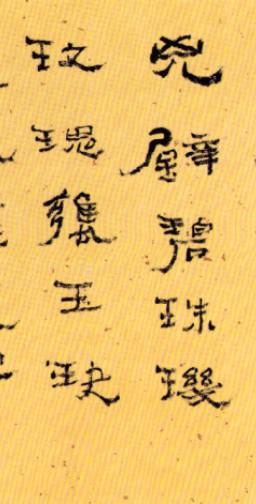 兇璧碧珠璣
玫瑰甕玉玦